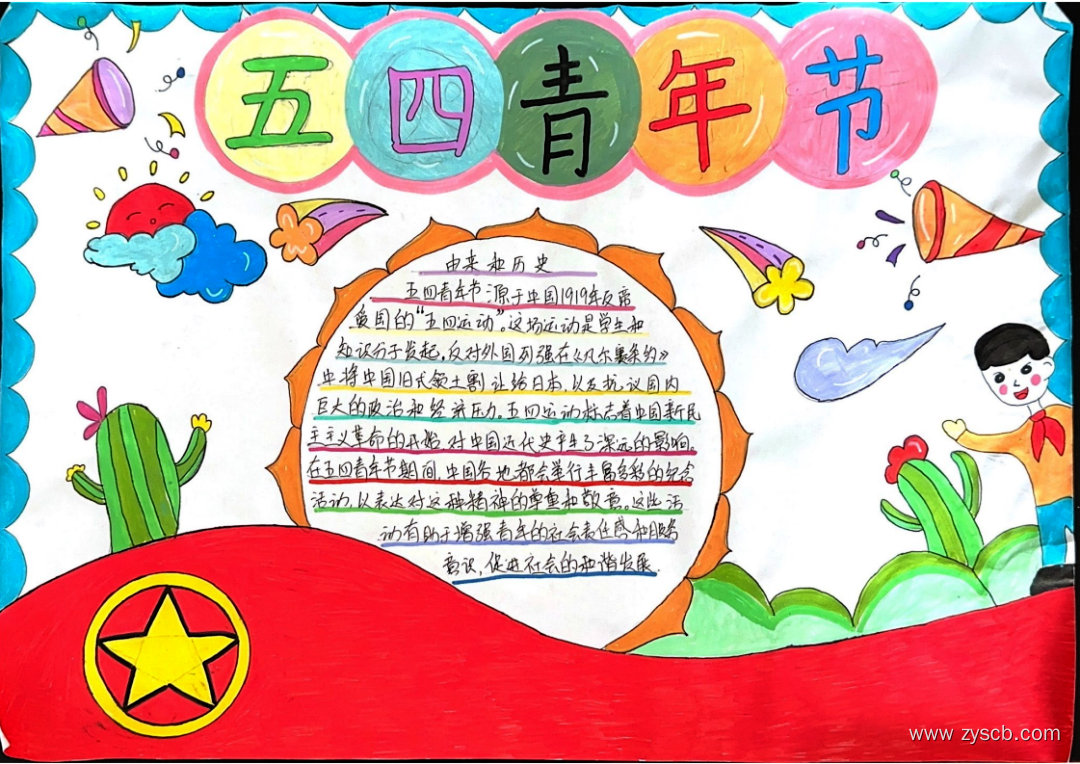 五四青年节
由来和历史
五四青年节源于中国1919年反帝
爱国的"五四运动"。这场运动是学生和
知识分子发起,反对外国列强在《凡尔赛条约》
中将中国旧式领土割让给日本,以及抗议国内
巨大的政治和经济压力。五四运动标志着中国新民
主主义革命的开始,对中国近代史产生了深远的影响。
在五四青年节期间,中国各地都会举行丰富多彩的纪念
活动,以表达对这种精神的尊重和敬意。这些活
动有助于增强青年的社会责任感和服务
意识,促进社会的和谐发展.
www.zyscb.com